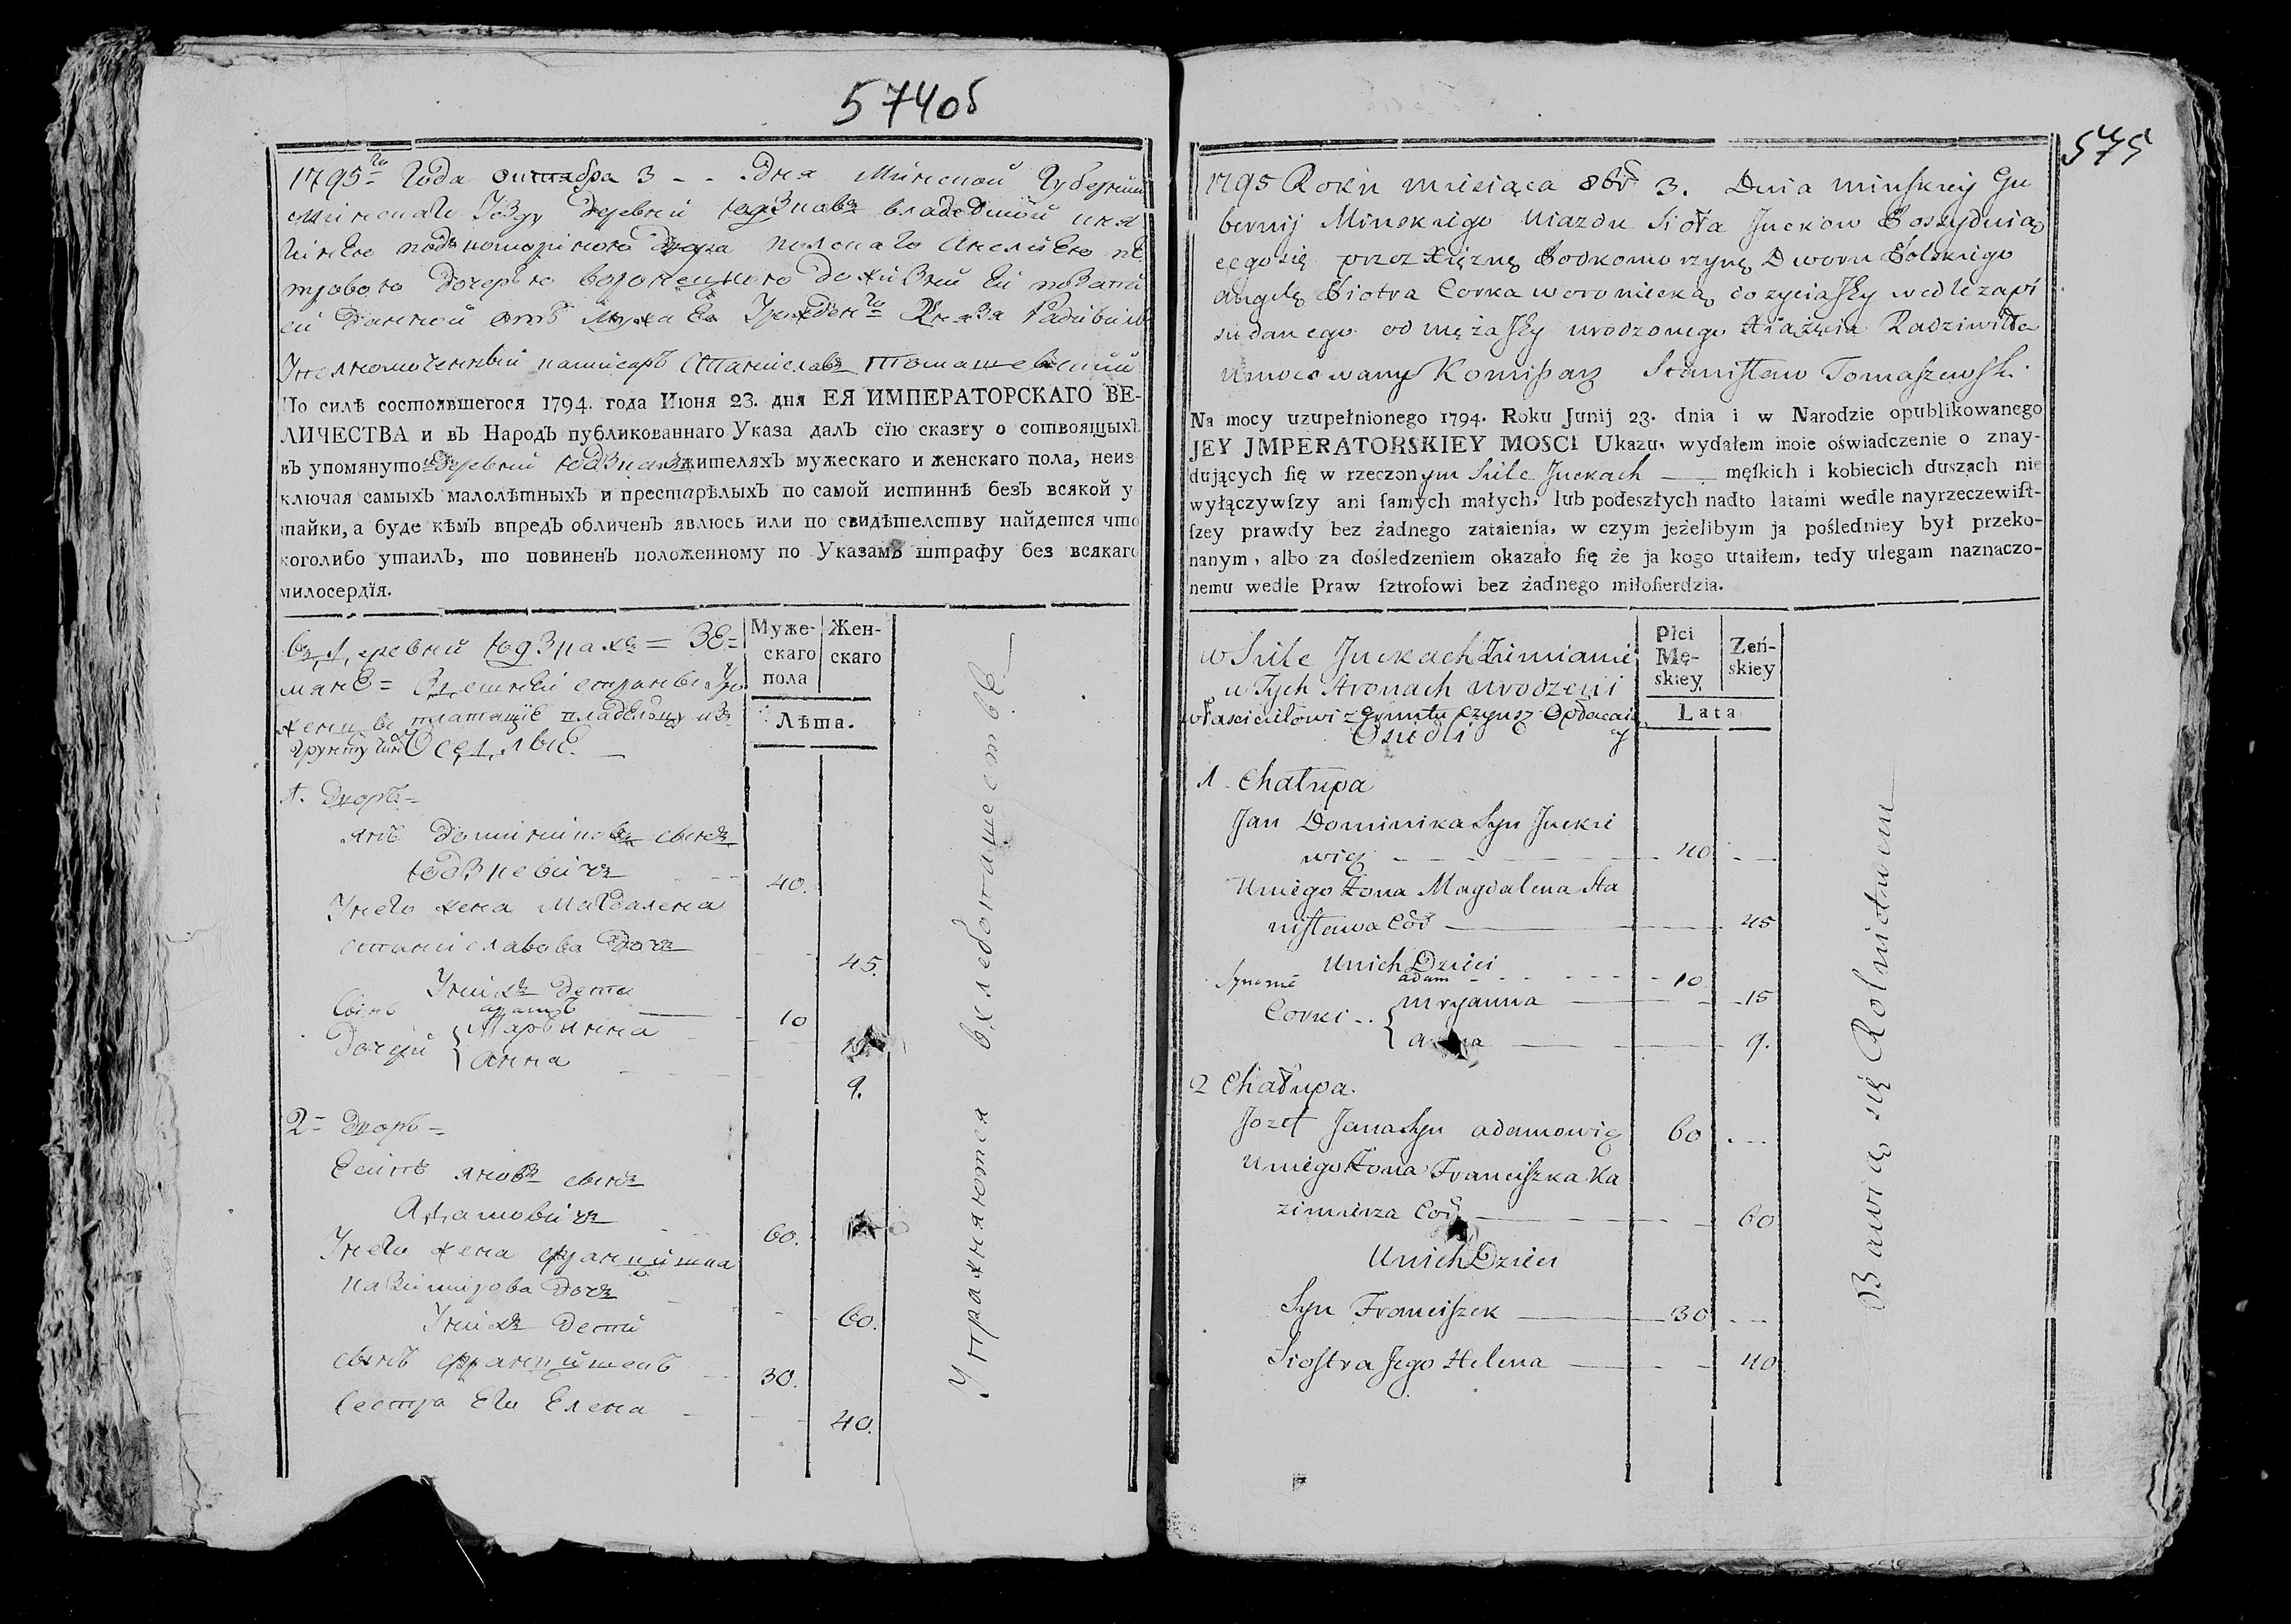 574об
1795го Года октября 3 - - дня Минской Губерніи
Минскаго Уезду деревни Юдзковъ владеемой кня
гинею подкоморіною двора полскаго Анелиею пе
тровою дочерью воронецкою доживней Ей
ей данной отъ Мужа Ея Урожден го Князя Радивил
Уполномоченный Станиславъ Томашевскій
По силѣ состоявшегося 1794. года Июня 23. дня ЕЯ ИМПЕРАТОРСКАГО ВЕ-
ЛИЧЕСТВА и въ Народъ публикованнаго Указа далъ сїю сказку о сотвоящыхъ
въ упомянутой деревни жителяхъ мужескаго и женскаго пола, неиз
ключая самыхъ малолѣтныхъ и престарѣлыхъ по самой истиннѣ безъ всякой у
тайки, а буде кѣмъ впредь обличенъ явлюсь или по свидѣтелству найдется что
коголибо утаилъ, то повиненъ положенному по Указамъ штрафу без всякаго
милосердїя.
въ деревни Юдзкахъ = Зе=
мяне = Здешней страны Уро
жени платящіе владельцу изъ
грунту чин Оседлые.
Муже-
скаго
пола
Жен-
скаго
Лѣта.
1. Дворъ =
Янъ доминиковъ сынъ
Юдзкевичъ - - 40.
Унего жена Магдалена
станиславова дочъ - - 45.
Унихъ дети
сынъ адамъ 10
дочери { Марьянна
Анна 9.
2 = Дворъ =
Есипъ яновъ сынъ
Адамовичъ 60.
Унего жена францишка
казимирова дочъ 60.
Унихъ дети
сынъ францишекъ 30.
Сестра Его Елена - 40.
Упражняются вхлебопашестве
575
1795 Roku miesiąca 8br 3. Dnia minskiey Gu
bernij Minskiego Uiazdu Sioła Juckow Possyduią
cego się przez Xięznę Podkomorzynę Dworu Polskiego
angelę Piotra Corka woroniecką do zycia Jey wedle zapi
su danego od męża Jey urodzonego Xiążęcia Radziwiłła
umocowany Komisarz Stanisław Tomaszewski
Na mocy uzupełnionego 1794. Roku Junij 23. dnia i w Narodzie opublikowanego
JEY JMPERATORSKIEY MOSCI Ukazu, wydałem moie oświadczenie o znay-
dujących ſię w rzeczonym Siele Juckach —— męſkich i kobiecich duszach nie
wyłączywſzy ani ſamych małych, lub podeszłych nadto latami wedle nayrzeczewiſt-
ſzey prawdy bez żadnego zataienia, w czym jeżelibym ja poślednіey był przeko-
nanym, albo za dośledzeniem okazało ſię że ja kogo utaiłem, tedy ulegam naznaczo-
nemu wedle Praw ſztrofowi bez żadnego miłoſierdzia.
w Siele Juckach Zimianie
w Tych Stronach urodzeni
włascicielowi z Gruntu czynsz Opłacaią
cy Osiedli
Płci
Mę-
skiey
Zeń-
skiey
Lata
1. Chałupa
Jan Dominika Syn Juckie
wicz - - - 40 - -
Uniego Zona Magdalena Sta
nisława Cór —— 45
Unich Dzieci
Synowie adam - - - 10
Corki - { maryanna —— 15
anna —— 9.
2 Chałupa.
Jozef Jana Syn adamowicz 60 - -
Uniego Zona Franciszka Ka
zimierza Cór —— 60
Unich Dzieci
Syn Franciszek —— 30 - -
Siostra Jego Helena —— 40
Bawią się Rolnictwem